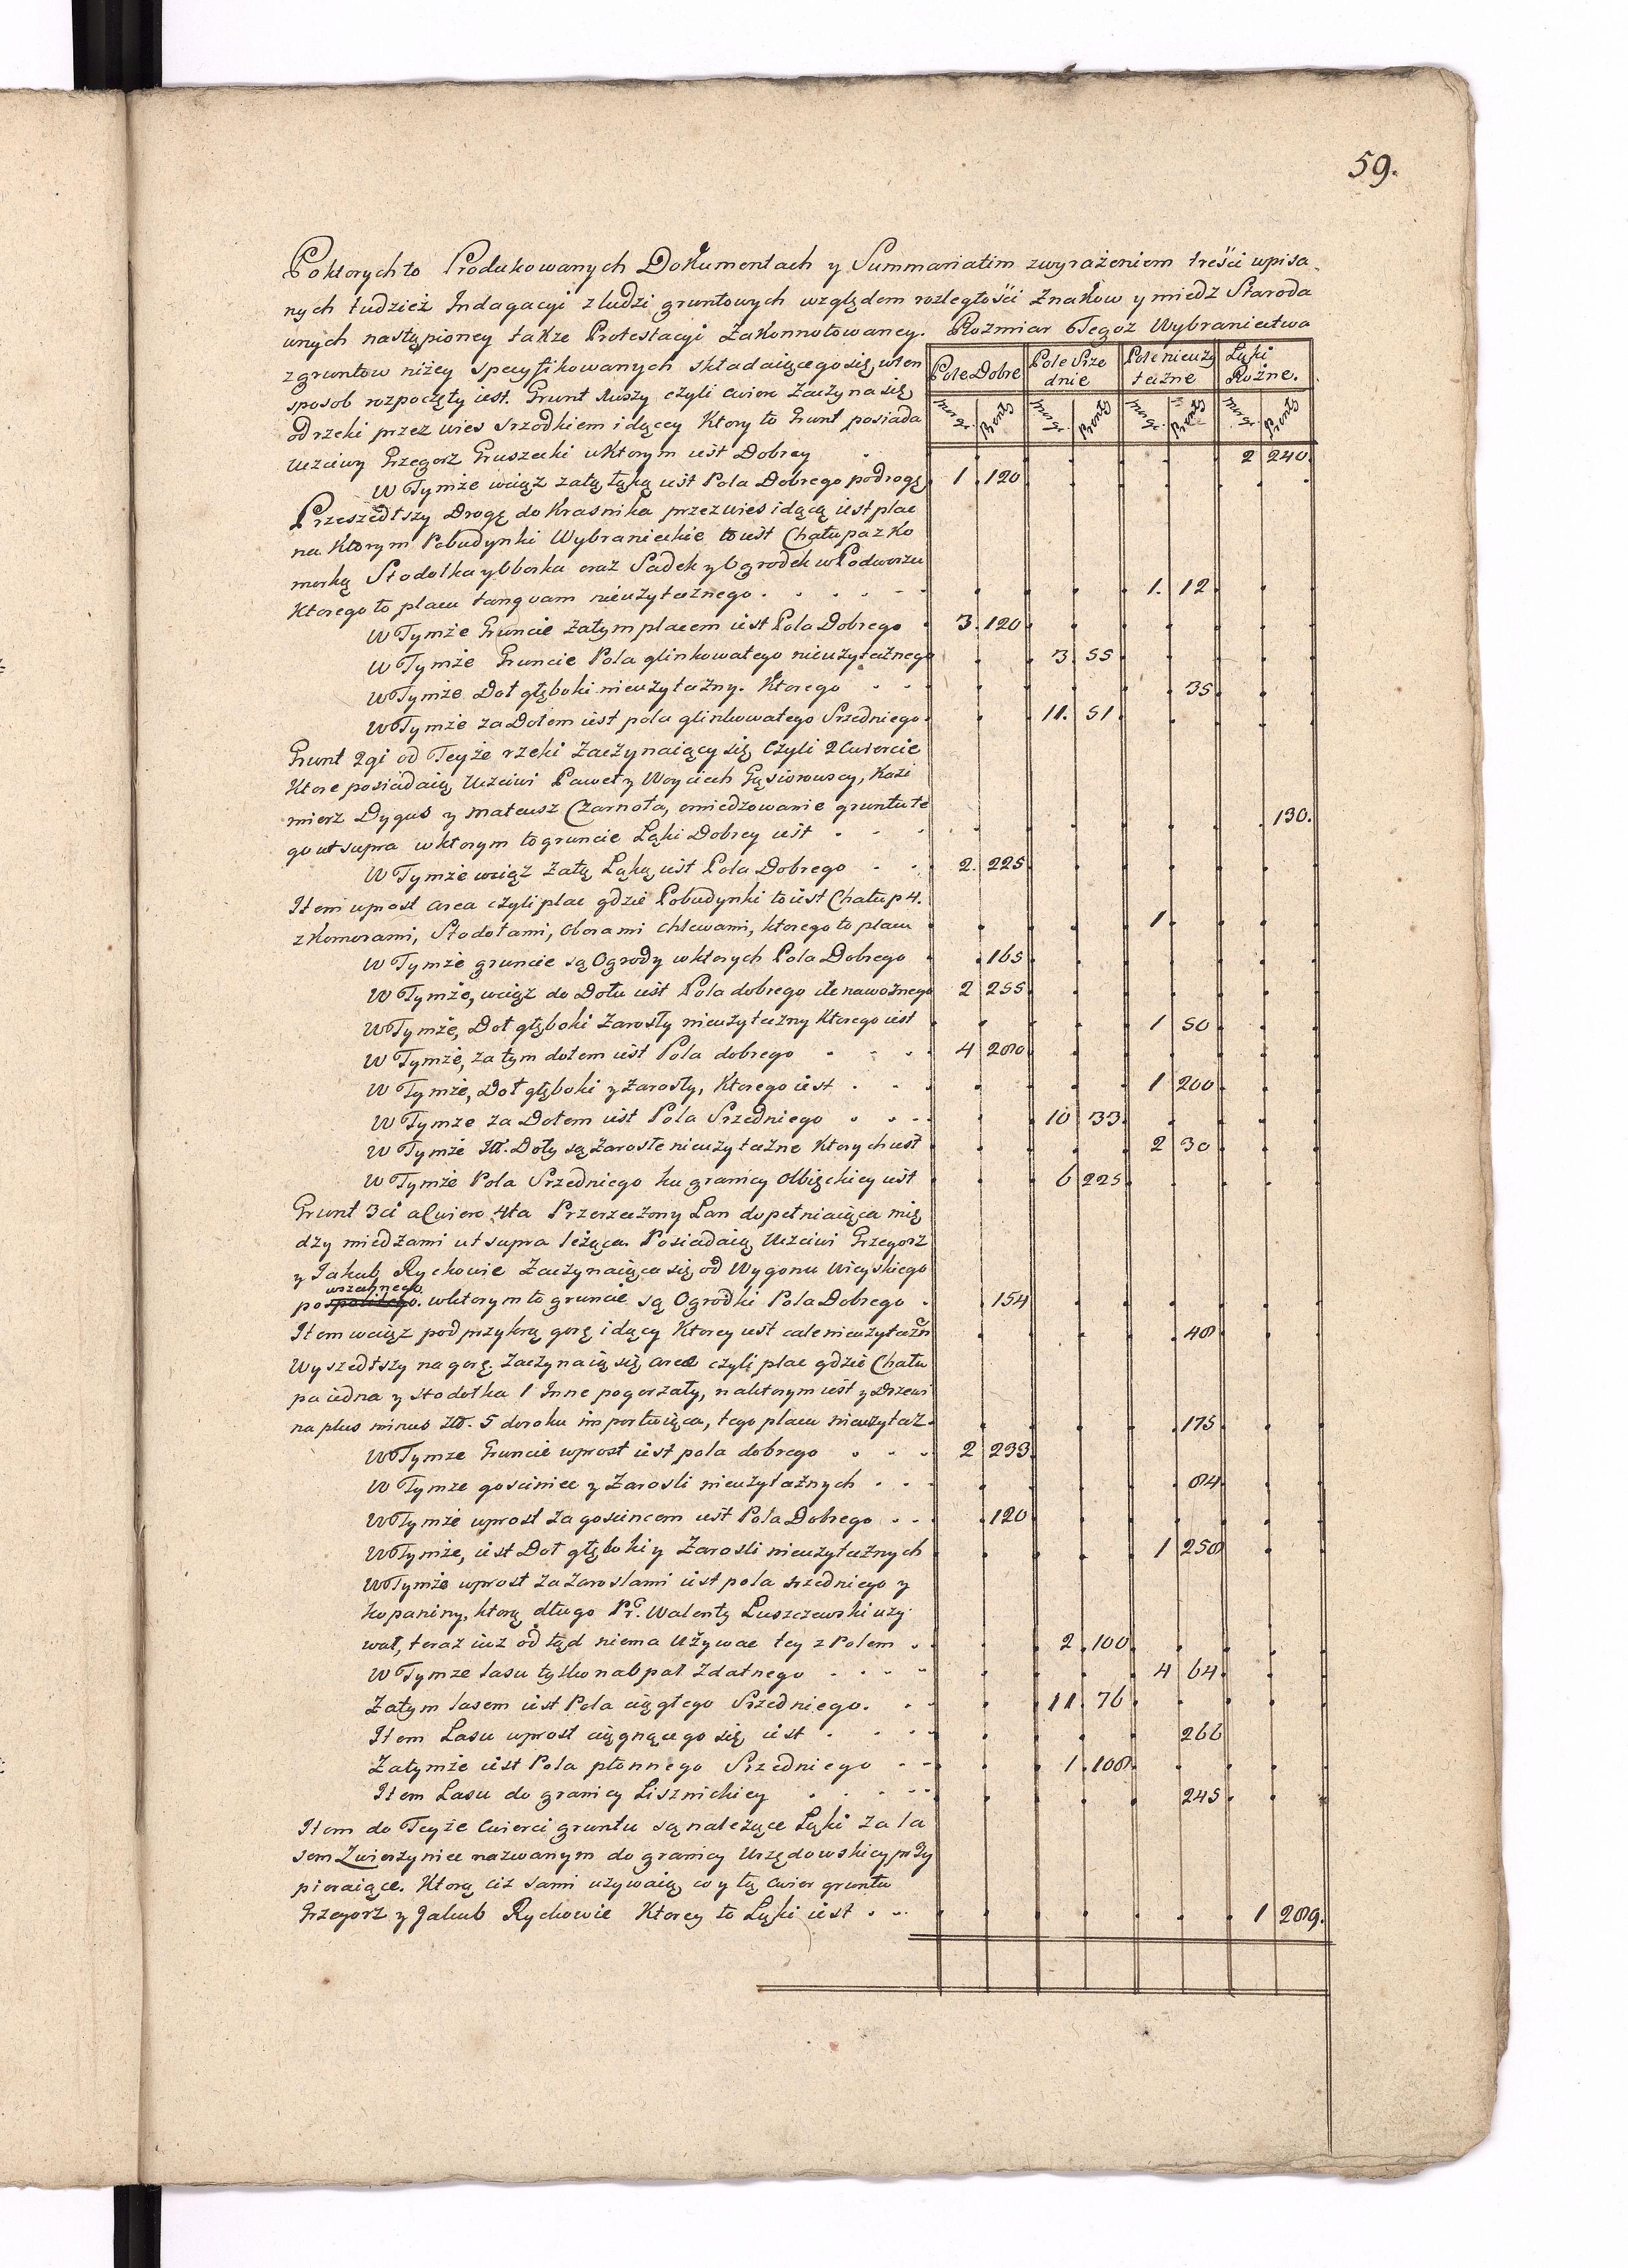 59.
Po ktorych to Produkowanych Dokumentach y Summariatim z wyrażeniem treści wpisa
nych tudzież Indagacyi z ludzi gruntowych względem rozległości Znakow y miedz Staroda
wnych nastąpioney takze Protestacyi Zakonnotowaney. Rozmiar Tegoż Wybraniectwa
z gruntow niżey specyfikowanych składaiącego się, w ten
sposob rozpoczęty iest. Grunt 1wszy czyli cwierc Zaczyna się
od rzeki przez wies srzodkiem idącey Ktory to Grunt posiada
Pole Dobre Pole Srze Pole nieuży Łąki
dnie teczne Rożne.
morg. Pręty morg. Pręty morg. Pręty morg. Pręty
Uczciwy Grzegorz Gruszecki w Ktorym iest Dobrey 2 240.
W Tymże wciąż za tą łąką iest Pola Dobrego pod rogę 1 120
Przeszedłszy Drogę do Krasnika przez wies idącą iest plac
na Ktorym Pobudynki Wybranieckie to iest Chałupa z Ko
morką Stodolka y Oborka oraz Sadek y Ogrodek w Podworzu
Ktorego to placu tanquam nieużytecznego 1. 12
W Tymże Gruncie za tym placem iest Pola Dobrego 3. 120
W Tymże Gruncie Pola glinkowatego nieużytecznego 3. 55
W Tymże Doł głęboki nieużyteczny. Ktorego 35
W Tymże za Dołem iest pola glinkowatego Srzedniego. 11. 51
Grunt 2gi od Teyże rzeki Zaczynaiący się czyli 2 Cwiercie
Ktore posiadaią Uczciwi Paweł y Woyciech Gąsiorowscy, Kazi
mierz Dygus y Mateusz Czarnota, omiedzowanie gruntu te
go ut supra w ktorym to gruncie Łąki Dobrey iest 130.
W Tymże wciąż za tą Łąką iest Pola Dobrego 2. 225
Item wprost area czyli plac gdzie Pobudynki to iest Chałup 4.
z Komorami, Stodołami, Oborami chlewami, ktorego to placu 1
W Tymże gruncie są Ogrody w ktorych Pola Dobrego 165
W Tymże, wciąż do Dołu iest Pola dobrego ile nawożnego 2 255
W Tymże, Doł głęboki Zarosły nieużyteczny Ktorego iest 1 50
W Tymże, za tym dołem iest Pola dobrego 4 280
W Tymże, Doł głęboki y Zarosły, Ktorego iest 1 200
W Tymze za Dołem iest Pola Srzedniego 10 33.
W Tymże Doły są Zarosłe nieużyteczne Ktorych iest 2 30
W Tymże Pola Srzedniego ku granicy Olbięckiey iest 6 225
Grunt 3ci a Cwierc 4ta Przerzeczony Łan dopełniaiąca mię
dzy miedzami ut supra leżąca. Posiadaią Uczciwi Grzegorz
y Jakub Rychowie Zaczynaiąca się od Wygonu Wieyskiego
wszechnego
pospolitego. w ktorym to gruncie są Ogrodki Pola Dobrego 154
Item wciąż pod przykrą gorę idący Ktorey iest całe nieużyteczn 48
Wyszedłszy na gorę. Zaczyna ią się area czyli plac gdzie Chału
pa iedna y Stodołka 1 Inne pogorzały, na ktorym iest y Drzewi
na plus minus Zł. 5 do roku importuiąca, tego placu nieużytecz. 175
W Tymze Gruncie wprost iest pola dobrego 2 233.
W Tymze gosciniec y Zarosli nieużytecznych 84
W Tymże wprost za goscincem iest Pola Dobrego 120
W Tymże, iest Doł głęboki y Zarosli nieużytecznych 1 258
W Tymże wprost za Zaroslami iest pola srzedniego y
kopaniny, ktorą długo Pr. Walenty Łuszczewski uży
wał, teraz iuż odtąd niema Używac tey z Polem 2. 100
W Tymze lasu tylko na opał Zdatnego 4 64.
Za tym lasem iest Pola ciągłego Srzedniego. 11. 76
Item Lasu wprost ciągnącego się iest 266
Za tymże iest Pola płonnego Srzedniego 1. 108
Item Lasu do granicy Lisznickiey 245
Item do Teyże Cwierci gruntu są należące Łąki za la
sem Zwierzyniec nazwanym do granicy Urzędowskiey przy
pieraiące. Ktorą ciż sami używaią co y tę cwierc gruntu
Grzegorz y Jakub Rychowie Ktorey to Łąki iest 1 289.